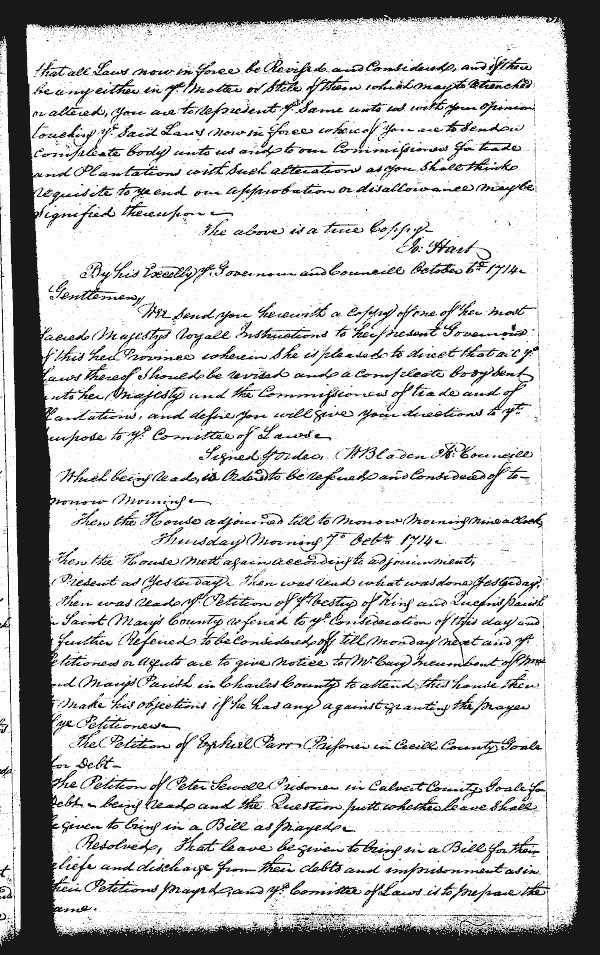 that all Laws now in force be Revised and Considered, and if there
be any either in ye Matter or Stile of them which may be retrenched
or altered, you are to represent ye Same unto us with your opinion
touching ye Said Laws now in force whereof you are to Send a
compleate body unto us and to our Commissioners for trade
and Plantations with Such alteration as you Shall think
requisite to ye end our approbation or disallowance may be
Signified thereupon
The above is a true Coppy
Jo: Hart
By his Excelly ye Governour and Councill October 6th 1714
Gentlemen,
We Send you herewith a Coppy of one of her most
Sacred Majestys royall Instructions to her present Governour
of this her Province wherein She is pleased to direct that all ye
Laws thereof Should be revised and a compleate body Sent
unto her Majesty and the Commissioners of trade and of
Plantations, and desire you will give your directions to yt
purpose to ye Comittee of Laws
Signed p order, W Bladen Councill
Which being read, is Ordered to be referred and Considered of to-
morrow Morning
Then the House adjourned till to Morrow Morning nine a Clock
Thursday Morning 7th Octbr 1714
Then the House mett again according to adjournment,
Present as Yesterday. Then was read what was done Yesterday.
Then was read ye Petition of ye Vestry of King and Queens parish
in Saint Marys County referred to ye Consideration of this day and
further Referred to be Considered off till Monday next and ye
Petitioners or Agents are to give notice to Mr Incumbent of
and Marys Parish in Charles County to attend this house then
to make his objections if he has any against granting the prayer
of ye Petitioners
The Petition of Ezekiel Parr Prisoner in Cecill County Goale
for Debt
The Petition of Peter Sewell Prisoner in Calvert County Goale for
Debt being read and the Question putt whether leave Shall
be given to bring in a Bill as prayed
Resolved, That leave be given to bring in a Bill for their
reliefe and discharge from their debts and imprisonment as in
their Petitions prayed, and ye Comittee of Laws is to prepare the
Same.